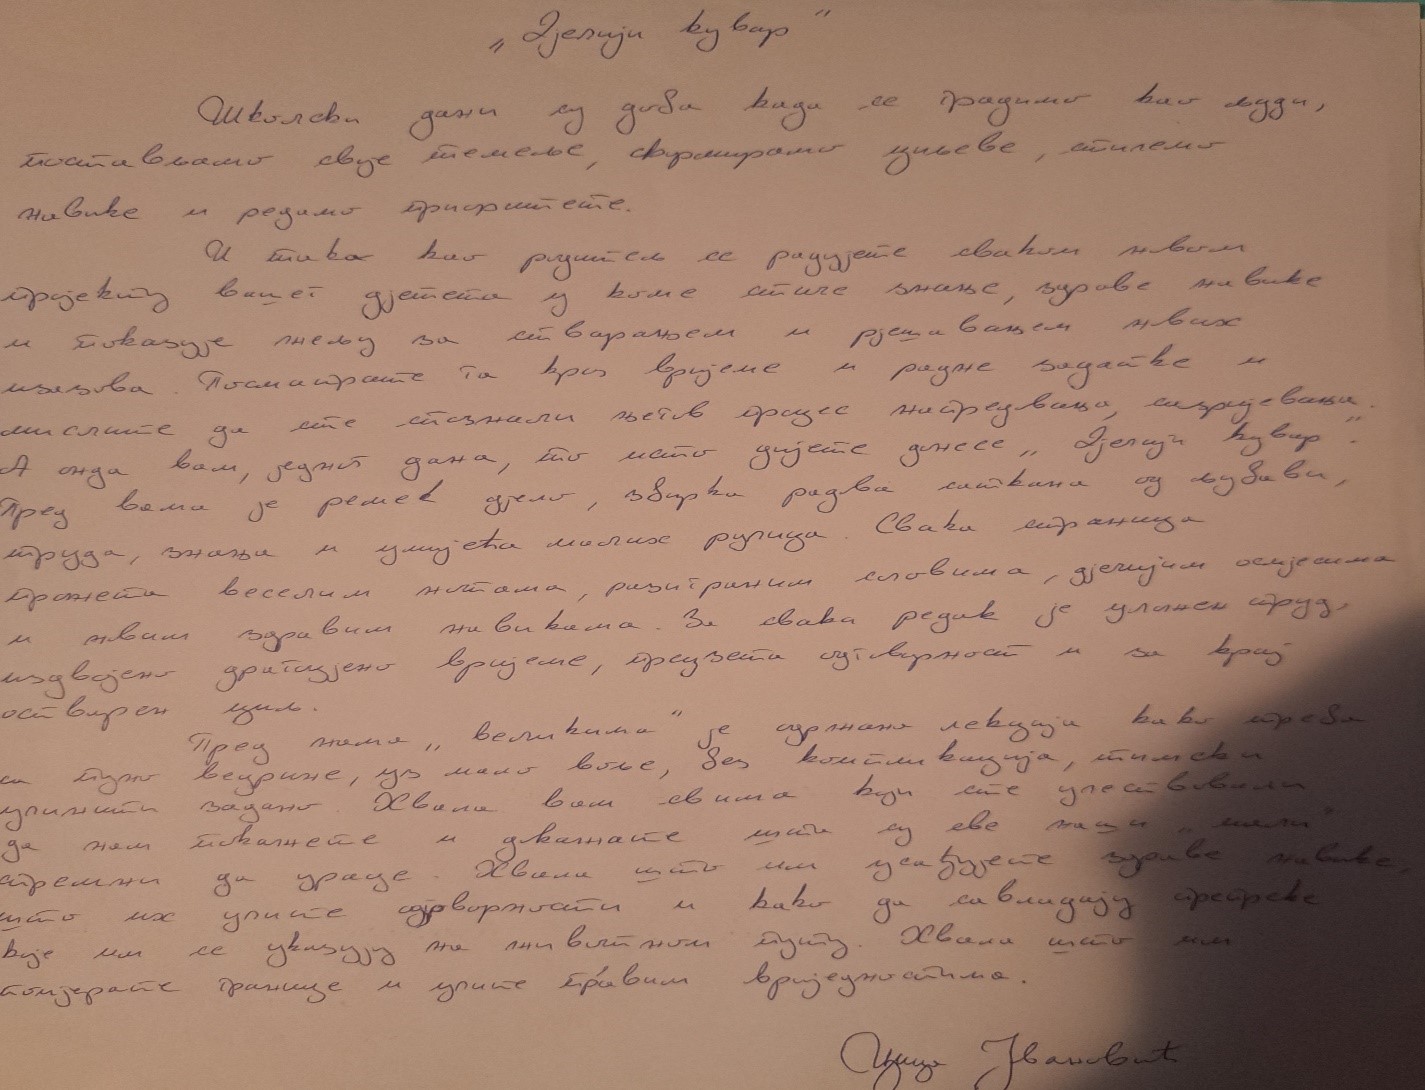 „Дјечији кувар“
Школски дани су доба када се градимо као људи,
постављамо своје темеље, формирамо циљеве, стичемо
навике и редамо приоритете.
И тако као родитељ се радујете сваком новом
пројекту вашег дјетета у коме стиче знање, здраве навике
и показује жељу за стварањем и рјешавањем нових
изазова. Посматрате га кроз вријеме и радне задатке и
мислите да сте спознали његов процес напредовања, сазријевања.
А онда вам, једног дана, то исто дијете донесе „Дјечији кувар“.
Пред вама је ремек дјело, збирка радова саткана од љубави,
труда, знања и умијећа малих ручица. Свака страница
прожета веселим нотама, разиграним словима, дјечијим осмјесима
и новим здравим навикама. За сваки редак је уложен труд,
издвојено драгоцјено вријеме, преузета одговорност и за крај
остварен циљ.
Пред нама „великима“ је одржана лекција како треба
са пуно ведрине, уз мало воље, без компликација, тимски
учинити задано. Хвала вам свима који сте учествовали
да нам покажете и докажете шта су ове наши „мали“
спремни да ураде. Хвала што им усађујете здраве навике,
што их учите одговорности и како да савладају препреке
које им се указују на животном путу. Хвала што им
помјерате границе и учите правим вриједностима.
Ивановић